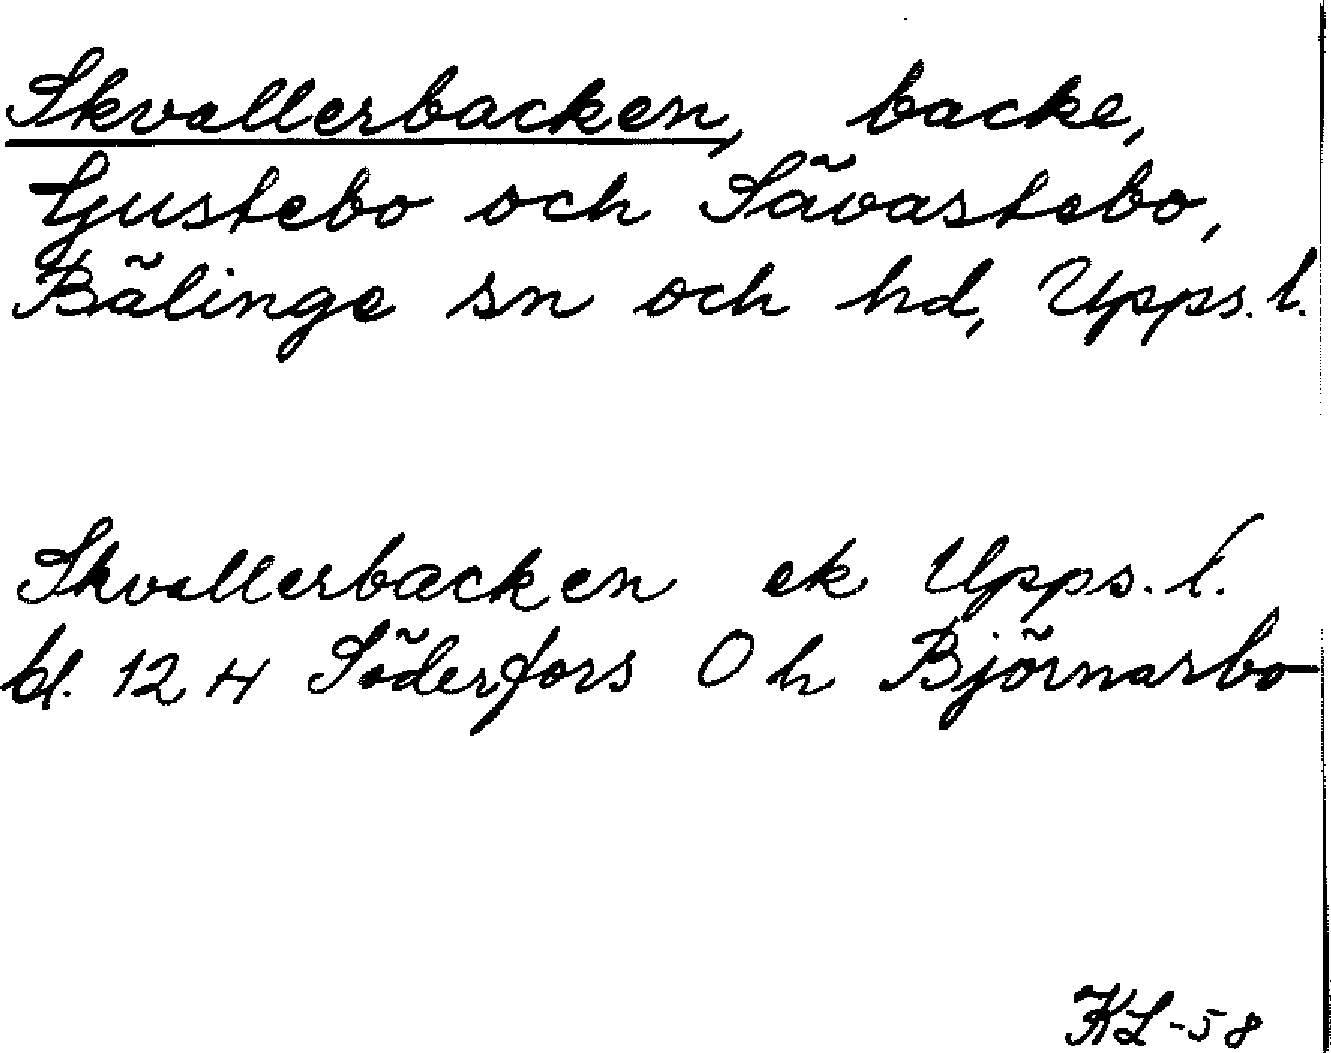 Skvallerbacken, backe,
Gustebo och Sävastebo,
Bälinge sn och hd, Upps. l.
Skvallerbacken ek Upps. l.
bl. 12 H Söderfors O h Björnarbo
KL-58